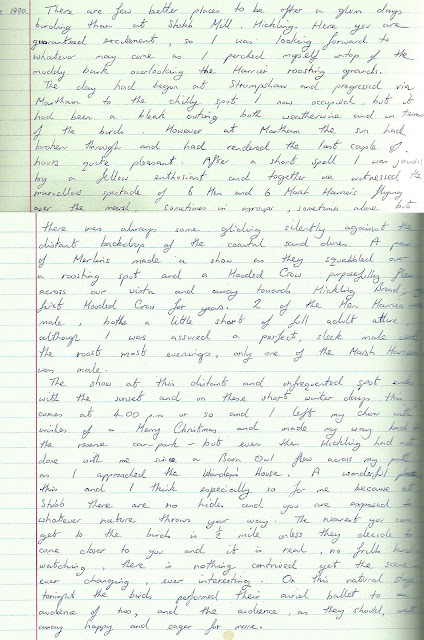 1990. There are few better places to be after a glum days
birding than at Stubb Mill, Hickling. Here you are
guaranteed excitement, so I was looking forward to
whatever may come as I perched myself ontop of the
muddy bank overlooking the Harrier roosting grounds.
The day had begun at Strumpshaw and progressed via
Martham to the chilly spot I now occupied, but it
had been a bleak outing both weatherwise and in terms
of the birds. However at Martham the sun had
broken through and had rendered the last couple of
hours quite pleasant. After a short spell I was joined
by a fellow enthusiast and together we witnessed the
marvellous spectacle of 6 Hen and 6 Marsh Harriers flying
over the marsh, sometimes in groups, sometimes alone but
there was always some gliding silently against the
distant backdrop of the coastal sand dunes. A pair
of Merlins made a show as they squabbled over
a roosting spot and a Hooded Crow purposefully flew
across our vista and away towards Hickling Broad, my
first Hooded Crow for years. 2 of the Hen Harriers were
male, bothe a little short of full adult attire,
although I was assured a perfect, sleek male uses
the roost most evenings, only one of the Marsh Harriers
was male.
The show at this distant and unfrequented spot ends
with the sunset and on these short winter days this
comes at 4.00 p.m or so and I left my chum with
wishes of a Merry Christmas and made my way back to
the reserve car-park - but even then Hickling had not
done with me since a Barn Owl flew across my path
as I approached the Warden's House. A wonderful place
this and I think especially so for me because at
Stubb there are no hides and you are exposed to
whatever nature throws your way. The nearest you can
get to the birds is ½ mile unless they decide to
come closer to you and it is real, no frills bird
watching, there is nothing contrived yet the scene is
ever changing, ever interesting. On this natural stage
tonight the birds performed their aerial ballet to an
audience of two, and the audience, as they should, went
away happy and eager for more.